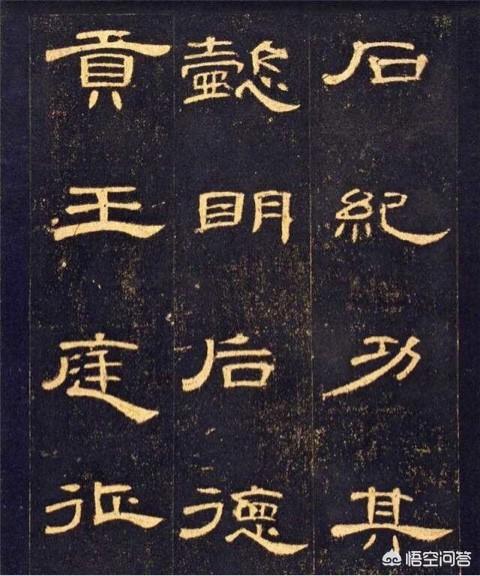 石紀功其
懿明后德
貢王庭征
悟空问答